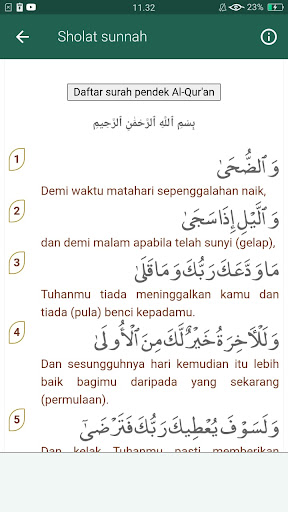 11.32
23%
Sholat sunnah
Daftar surah pendek Al-Qur'an
بِسْمِ ٱللَّهِ ٱلرَّحْمَٰنِ ٱلرَّحِيمِ
1
وَٱلضُّحَىٰ
Demi waktu matahari sepenggalahan naik,
2
وَٱلَّيْلِ إِذَا سَجَىٰ
dan demi malam apabila telah sunyi (gelap),
3
مَا وَدَّعَكَ رَبُّكَ وَمَا قَلَىٰ
Tuhanmu tiada meninggalkan kamu dan
tiada (pula) benci kepadamu.
4
وَلَلْءَاخِرَةُ خَيْرٌ لَّكَ مِنَ ٱلْأُولَىٰ
Dan sesungguhnya hari kemudian itu lebih
baik bagimu daripada yang sekarang
(permulaan).
5
وَلَسَوْفَ يُعْطِيكَ رَبُّكَ فَتَرْضَىٰٓ
Dan kelak Tuhanmu pasti memberikan